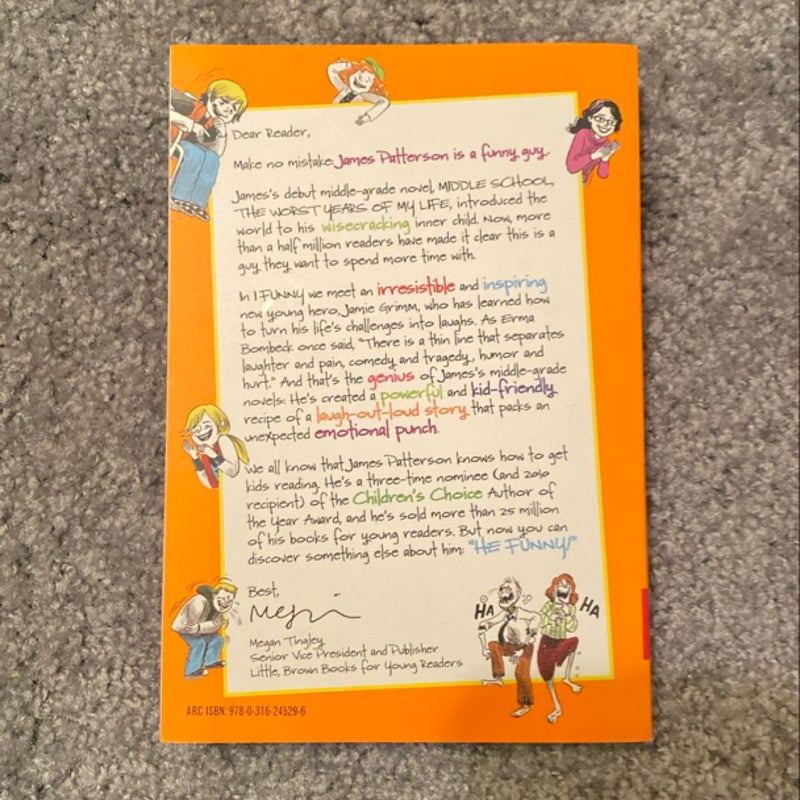 Dear Reader,
Make no mistake: James Patterson is a funny guy.
James's debut middle-grade novel, MIDDLE SCHOOL,
THE WORST YEARS OF MY LIFE, introduced the
world to his wisecracking inner child. Now, more
than a half million readers have made it clear this is a
guy they want to spend more time with.
In I FUNNY we meet an irresistible and inspiring
new young hero, Jamie Grimm, who has learned how
to turn his life's challenges into laughs. As Erma
Bombeck once said, "There is a thin line that separates
laughter and pain, comedy and tragedy, humor and
hurt." And that's the genius of James's middle-grade
novels: He's created a powerful and kid-friendly
recipe of a laugh-out-loud story that packs an
unexpected emotional punch.
We all know that James Patterson knows how to get
kids reading. He's a three-time nominee (and 2010
recipient) of the Children's Choice Author of
the Year Award, and he's sold more than 25 million
of his books for young readers. But now you can
discover something else about him: "HE FUNNY!"
Best,
Megan Tingley
Senior Vice President and Publisher
Little, Brown Books for Young Readers
HA
HA
ARC ISBN: 978-0-316-24529-6